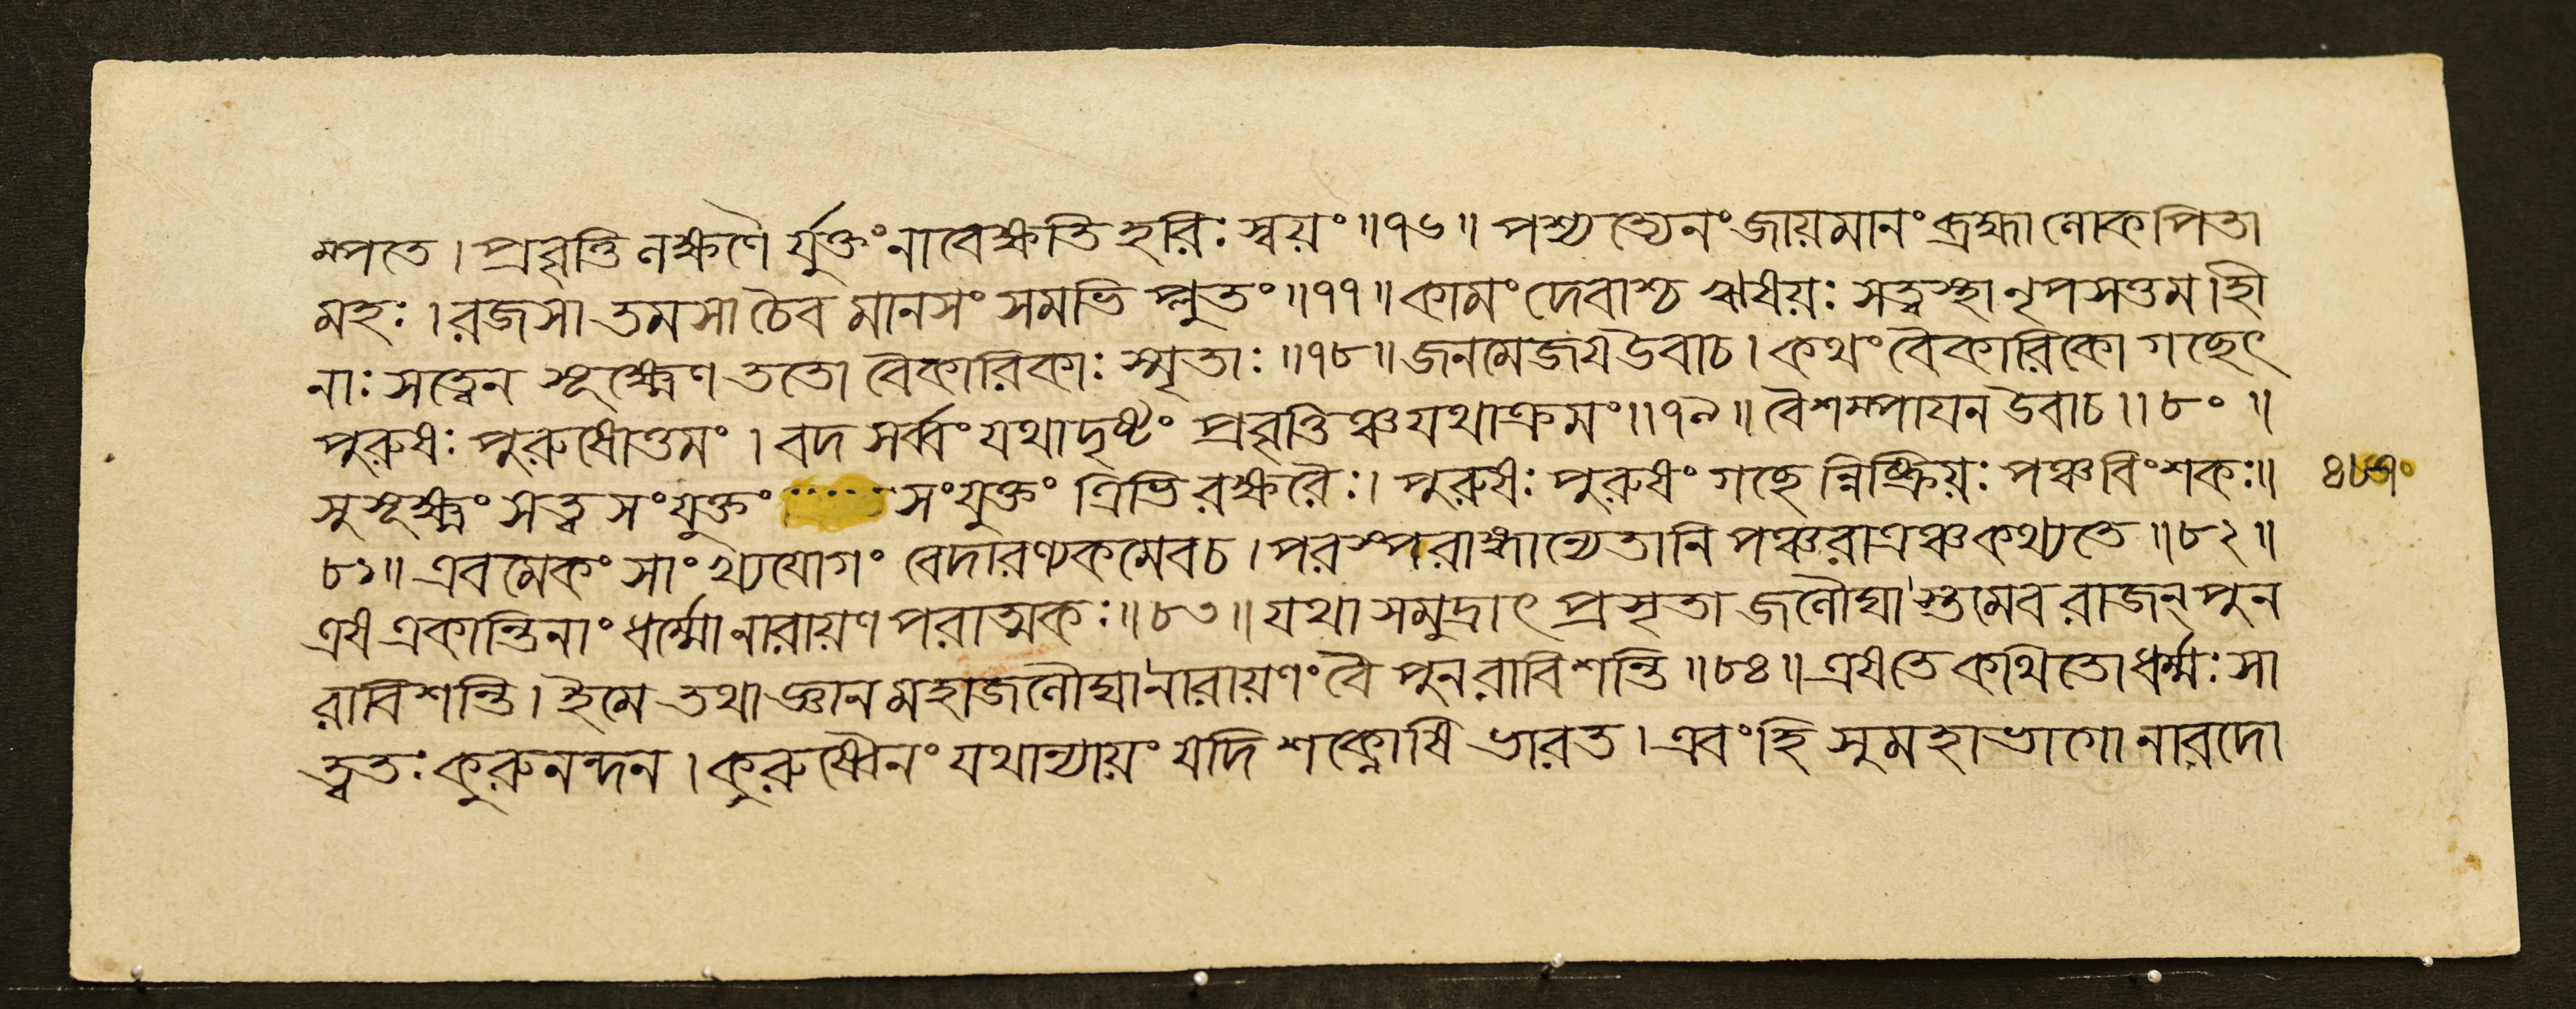 ম্পতে । প্রবৃত্তি লক্ষণৈ র্যুক্তং নাবেক্ষতি হরিঃ স্বয়ং ॥ ৭৬ ॥ পশ্যত্যেনং জায়মানং ব্রহ্মা লোক পিতা
মহঃ । রজসা তমসা চৈব মানসং সমভি প্লুতং ॥ ৭৭ ॥ কামং দেবাশ্চ ঋষয়ঃ সত্ত্বস্থা নৃপসত্তম হী
নাঃ সত্ত্বেন সূক্ষ্মেণ ততো বৈকারিকাঃ স্মৃতাঃ ॥ ৭৮ ॥ জনমেজয উবাচ । কথং বৈকারিকো গচ্ছেৎ
পুরুষঃ পুরুষোত্তমং । বদ সর্ব্বং যথাদৃষ্টং প্রবৃত্তিঞ্চ যথাক্রমং ॥ ৭৯ ॥ বৈশম্পাযন উবাচ ॥ ৮০ ॥
সুসূক্ষ্মং সত্ত্ব সংযুক্তং সংযুক্তং ত্রিভি রক্ষরৈঃ । পুরুষঃ পুরুষং গচ্ছে ন্নিষ্ক্রিয়ঃ পঞ্চবিংশকঃ ॥
৮১ ॥ এবমেকং সাংখ্যযোগং বেদারণ্যকমেবচ । পরস্পরাঙ্গান্যেতানি পঞ্চরাত্রঞ্চ কথ্যতে ॥ ৮২ ॥
এষ একান্তিনাং ধর্ম্মো নারায়ণ পরাত্মকঃ ॥ ৮৩ ॥ যথা সমুদ্রাৎ প্রসৃতা জলৌঘা স্তমেব রাজন্ পুন
রাবিশন্তি । ইমে তথা জ্ঞান মহাজলৌঘা নারায়ণং বৈ পুনরাবিশন্তি ॥ ৮৪ ॥ এষতে কথিতো ধর্ম্মঃ সা
ত্বতঃ কুরুনন্দন । কুরুষ্বৈনং যথান্যায়ং যদি শক্নোষি ভারত । এবং হি সুমহাভাগো নারদো